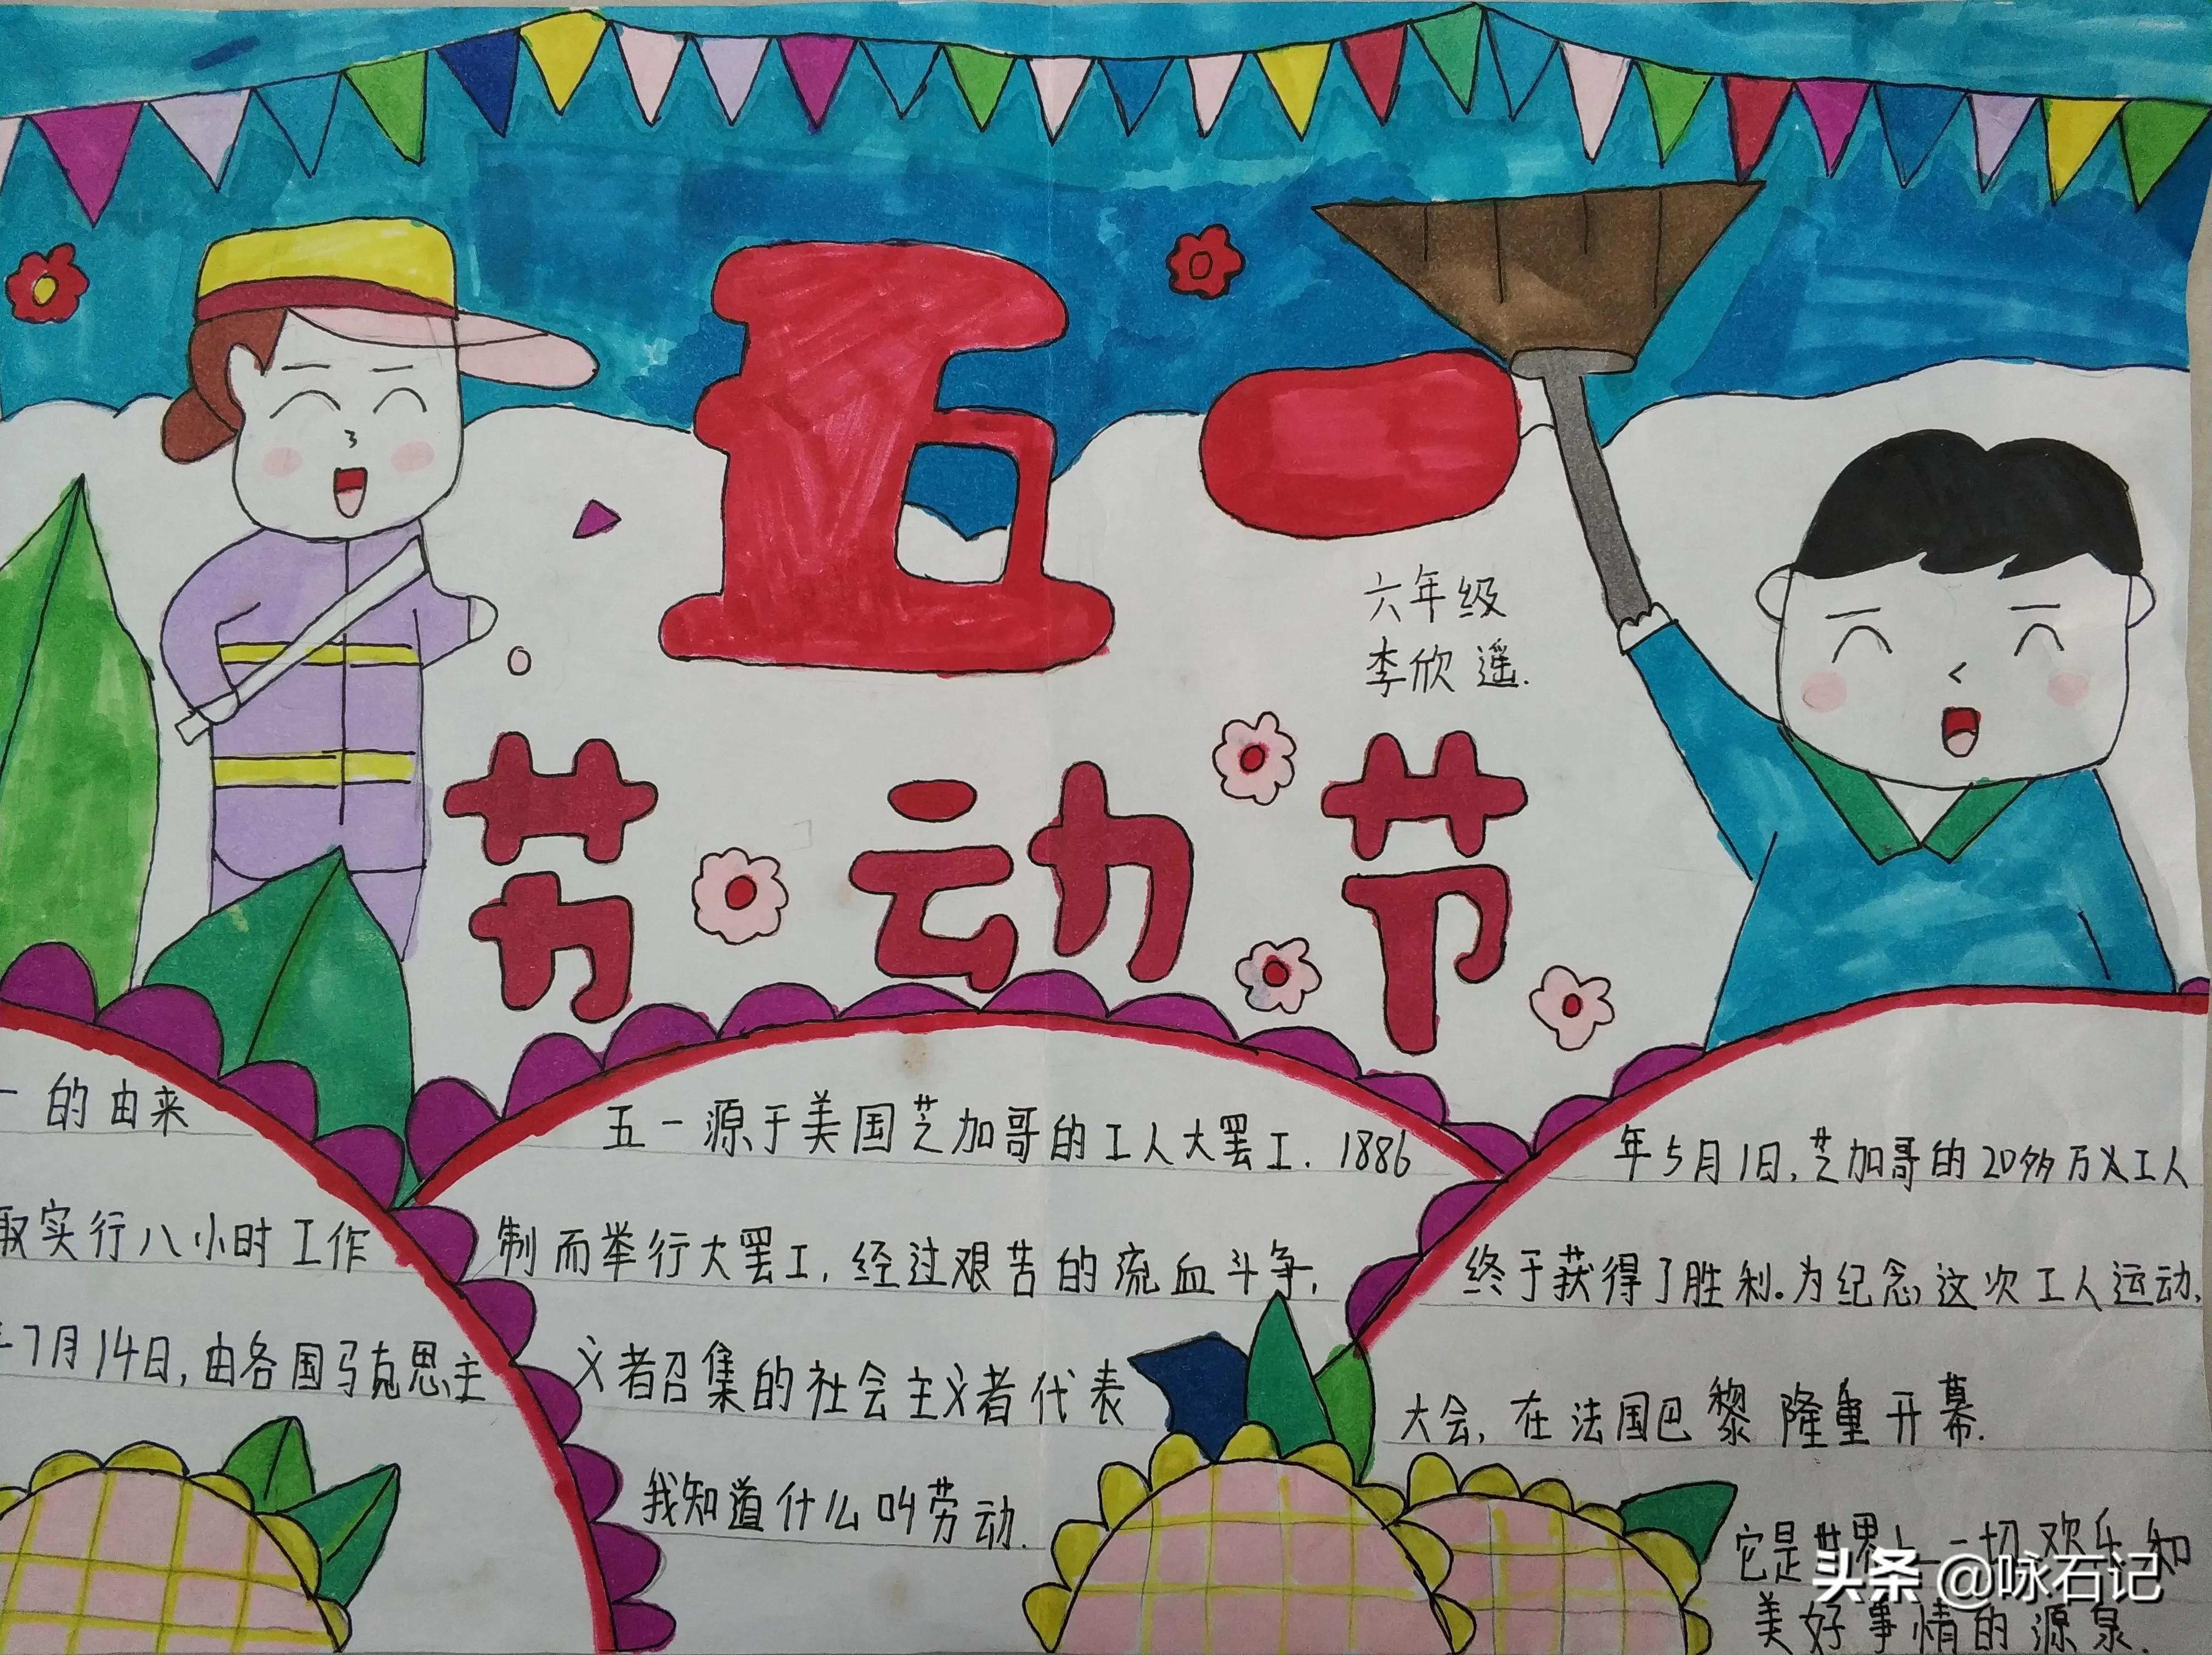 五一
六年级
李欣遥.
劳动节
一的由来
五一源于美国芝加哥的工人大罢工.1886
年5月1日,芝加哥的20多万义工人
取实行八小时工作
制而举行大罢工,经过艰苦的流血斗争,
终于获得了胜利。为纪念这次工人运动,
年7月14日,由各国马克思主
义者召集的社会主义者代表
大会,在法国巴黎隆重开幕.
我知道什么叫劳动.
它是世界上一切欢乐和
美好事情的源泉.
头条 @咏石记